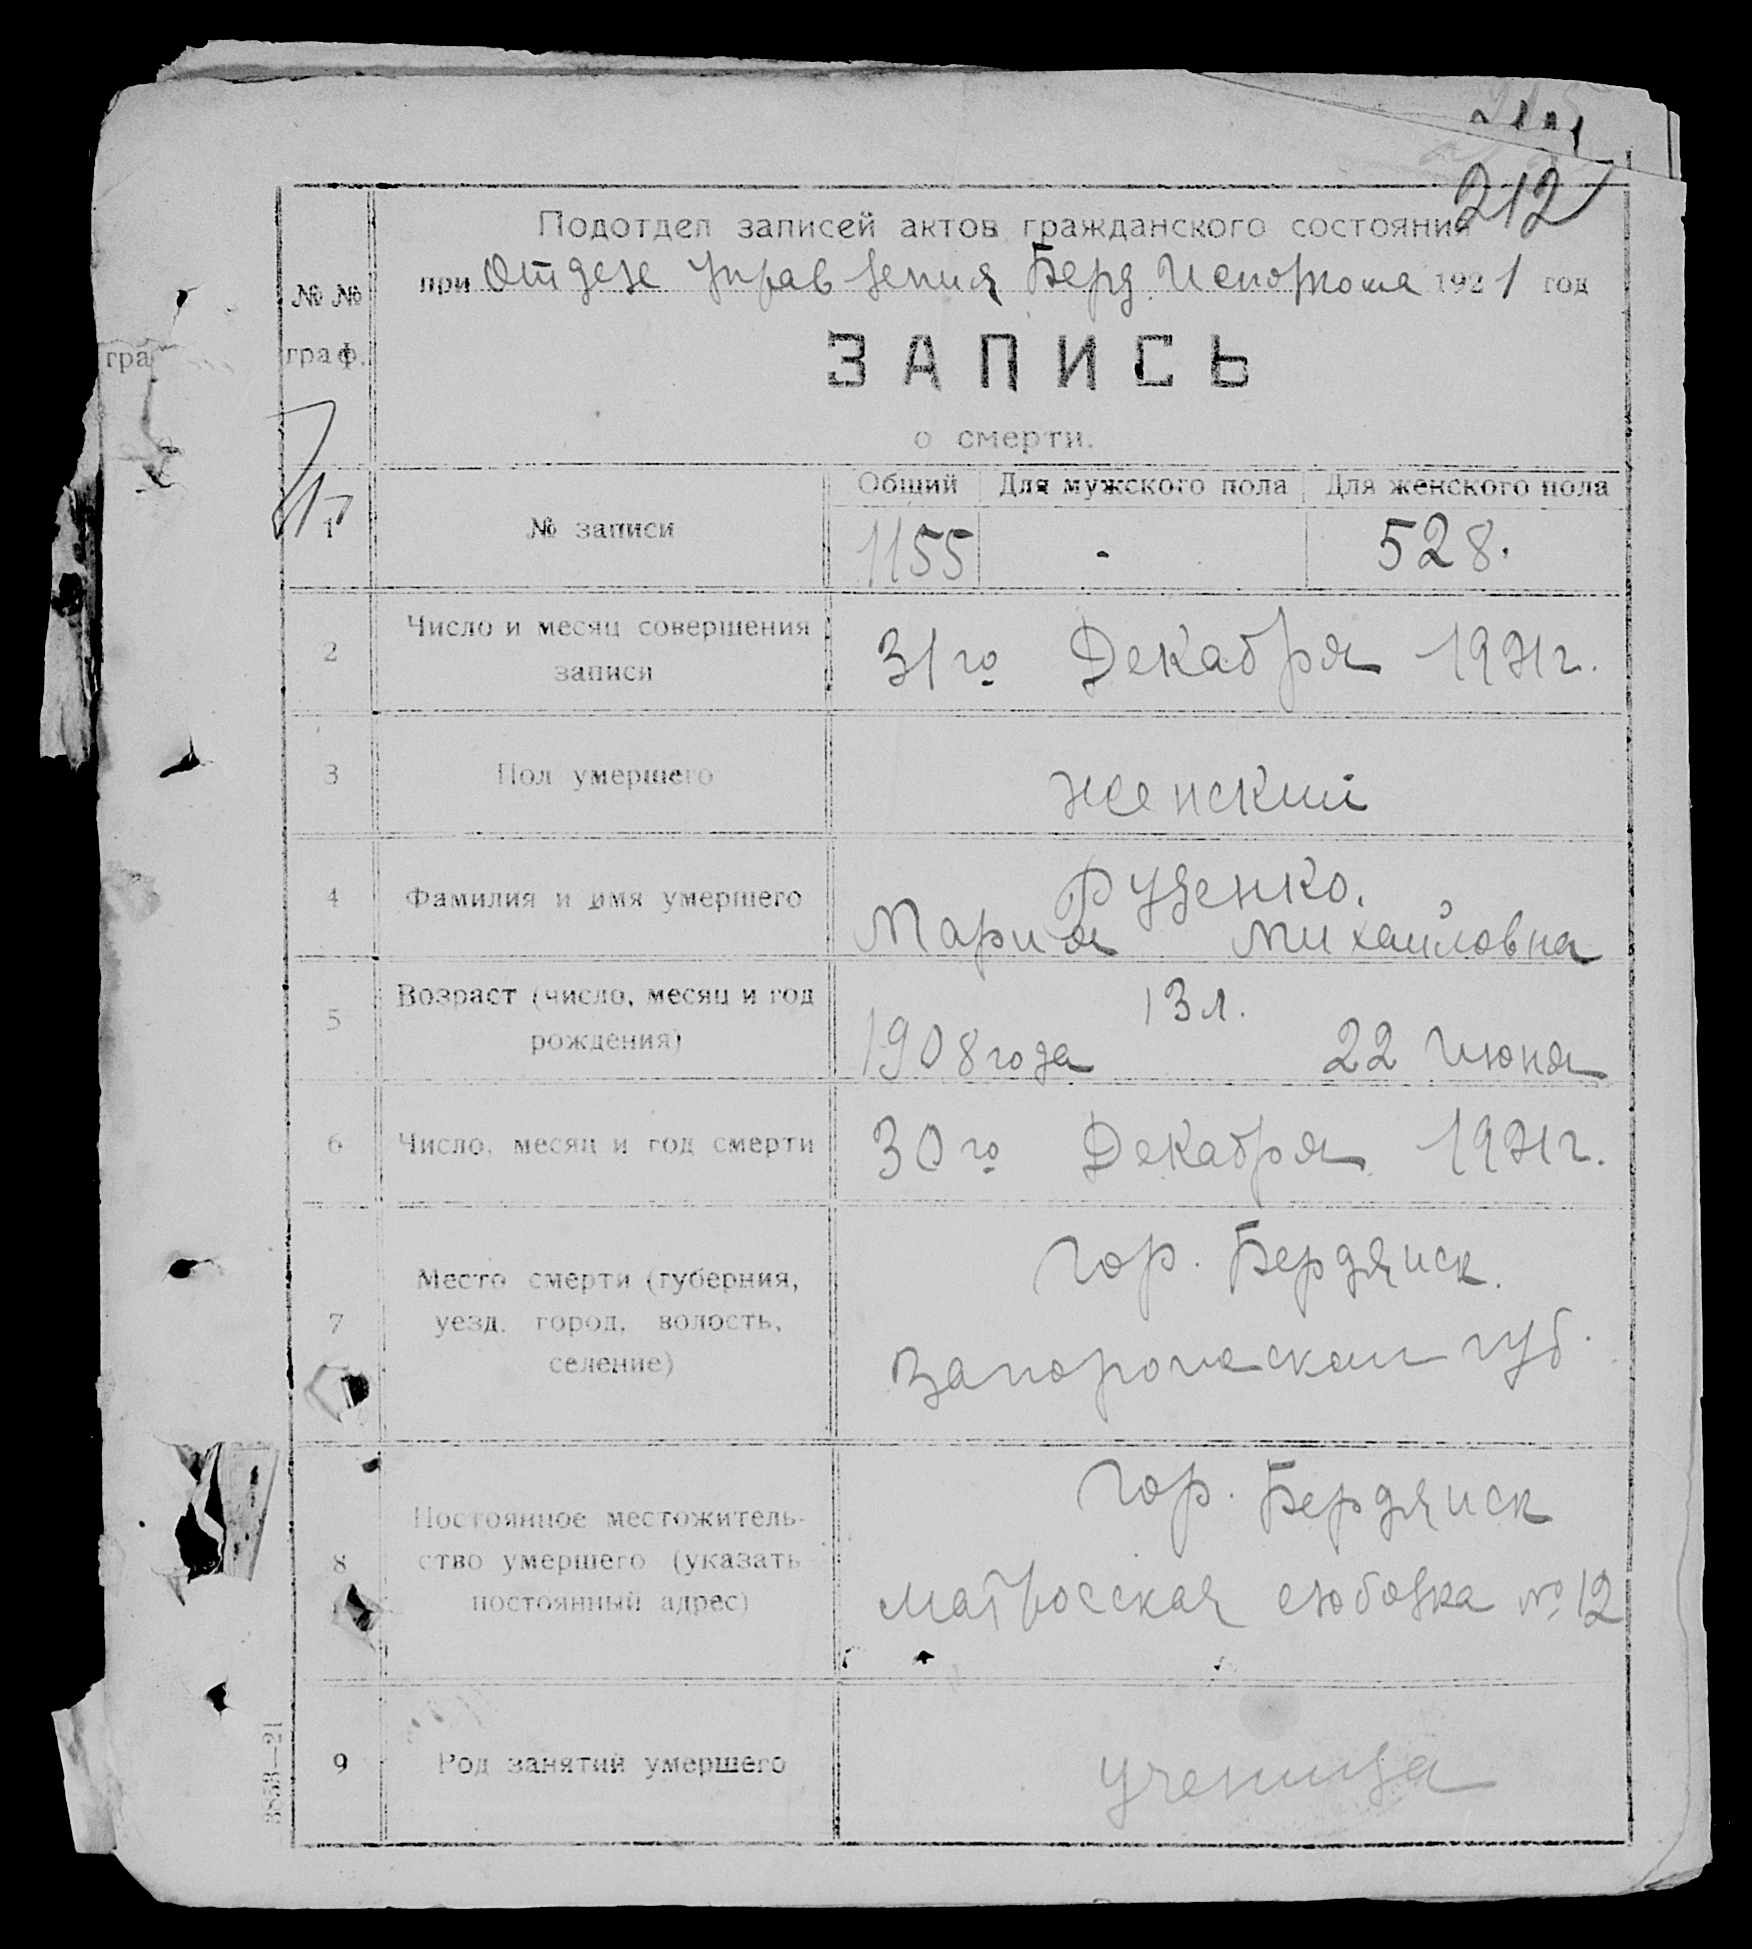 212
Подотдел записей актов гражданского состояния
при Отделе Управления Берд. Исполкома 1921 год
№ №
граф.
гра
ЗАПИСЬ
о смерти.
Общий Для мужского пола Для женского пола
1 № записи 1155 - 528.
2 Число и месяц совершения
записи
31го Декабря 1921г.
3 Пол умершего женский
4 Фамилия и имя умершего Руденко.
Мария Михайловна
5 Возраст (число, месяц и год
рождения)
13 л.
1908 года 22 Июня
6 Число, месяц и год смерти 30го Декабря 1921г.
7 Место смерти (губерния,
уезд, город, волость,
селение)
Гор. Бердянск.
Запорожской губ.
8 Постоянное местожитель-
ство умершего (указать
постоянный адрес)
Гор. Бердянск
Матросская слободка № 12
9 Род занятий умершего ученица
3658—21